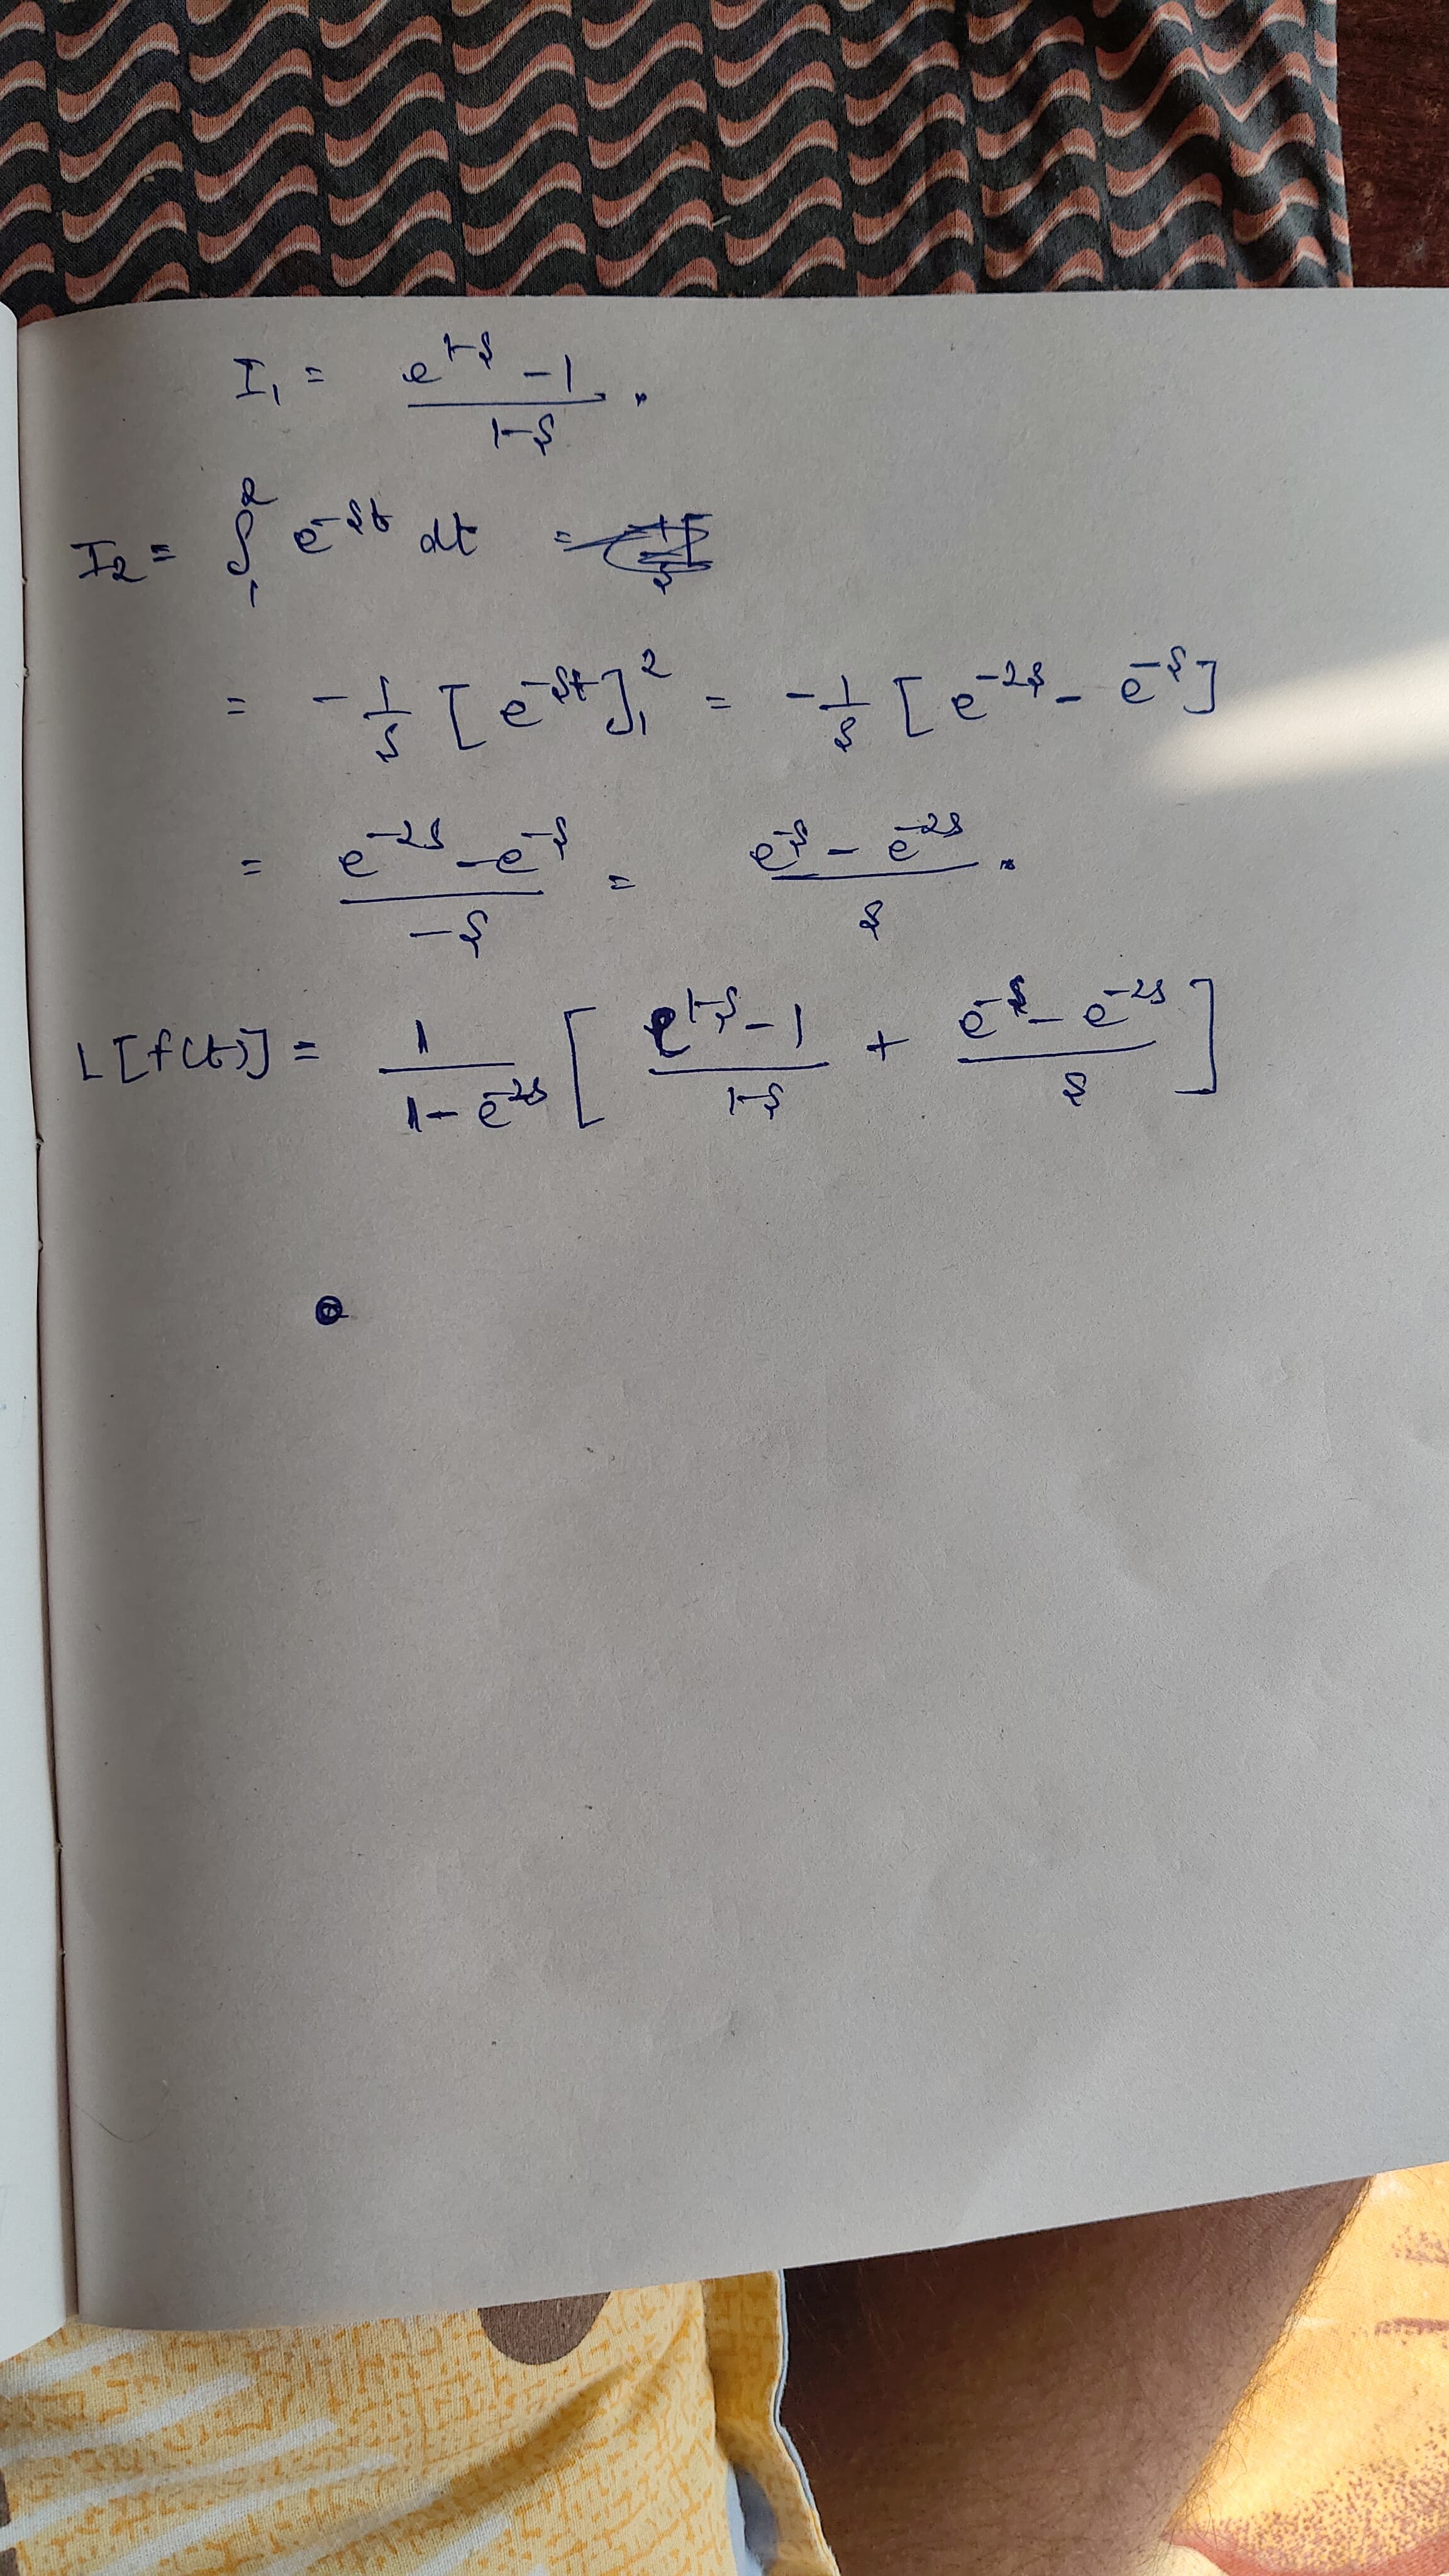 I₁ = (e^(1-s) - 1) / (1-s) .
I₂ = ∫₁² e^(-st) dt =
= -1/s [e^(-st)]₁² = -1/s [e^(-2s) - e^(-s)]
= (e^(-2s) - e^(-s)) / (-s) = (e^(-s) - e^(-2s)) / s .
L[f(t)] = 1 / (1 - e^(-2s)) [ (e^(1-s) - 1) / (1-s) + (e^(-s) - e^(-2s)) / s ]